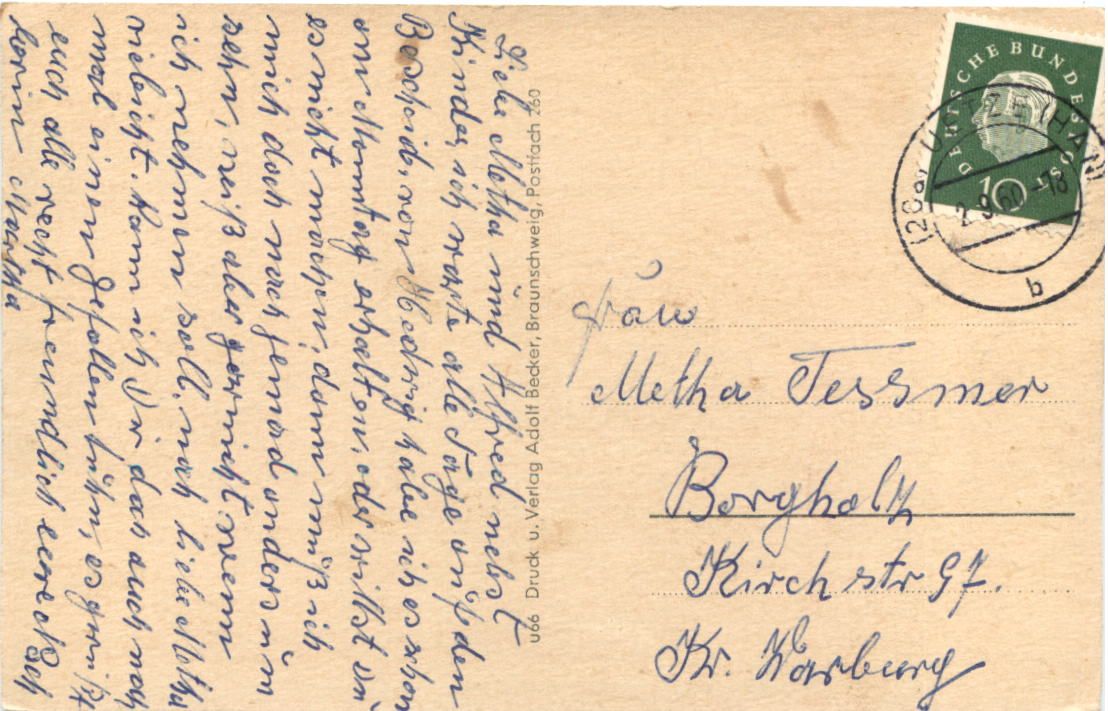 Liebe Metha und Alfred nebst
Kinder, ich warte alle Tage auf den
Bescheid, von Hedwig habe ich es schon
am Montag erhalten, oder willst du
es nicht machen, dann muß ich
mich doch nach jemand anders um
sehn, weiß aber garnicht wenn
ich nehmen soll, nach liebe Metha
vielleicht. Kann ich Dir das auch noch
mal einen gefallen tuhn, es grüßt
euch alle recht freundlich eure
Martha
u66 Druck u. Verlag Adolf Becker, Braunschweig, Postfach 260
DEUTSCHE BUNDESPOST
10
2.9.60-18
b
Frau
Metha Tessmer
Borgholz
Kirchstr 97.
Kr. Warburg